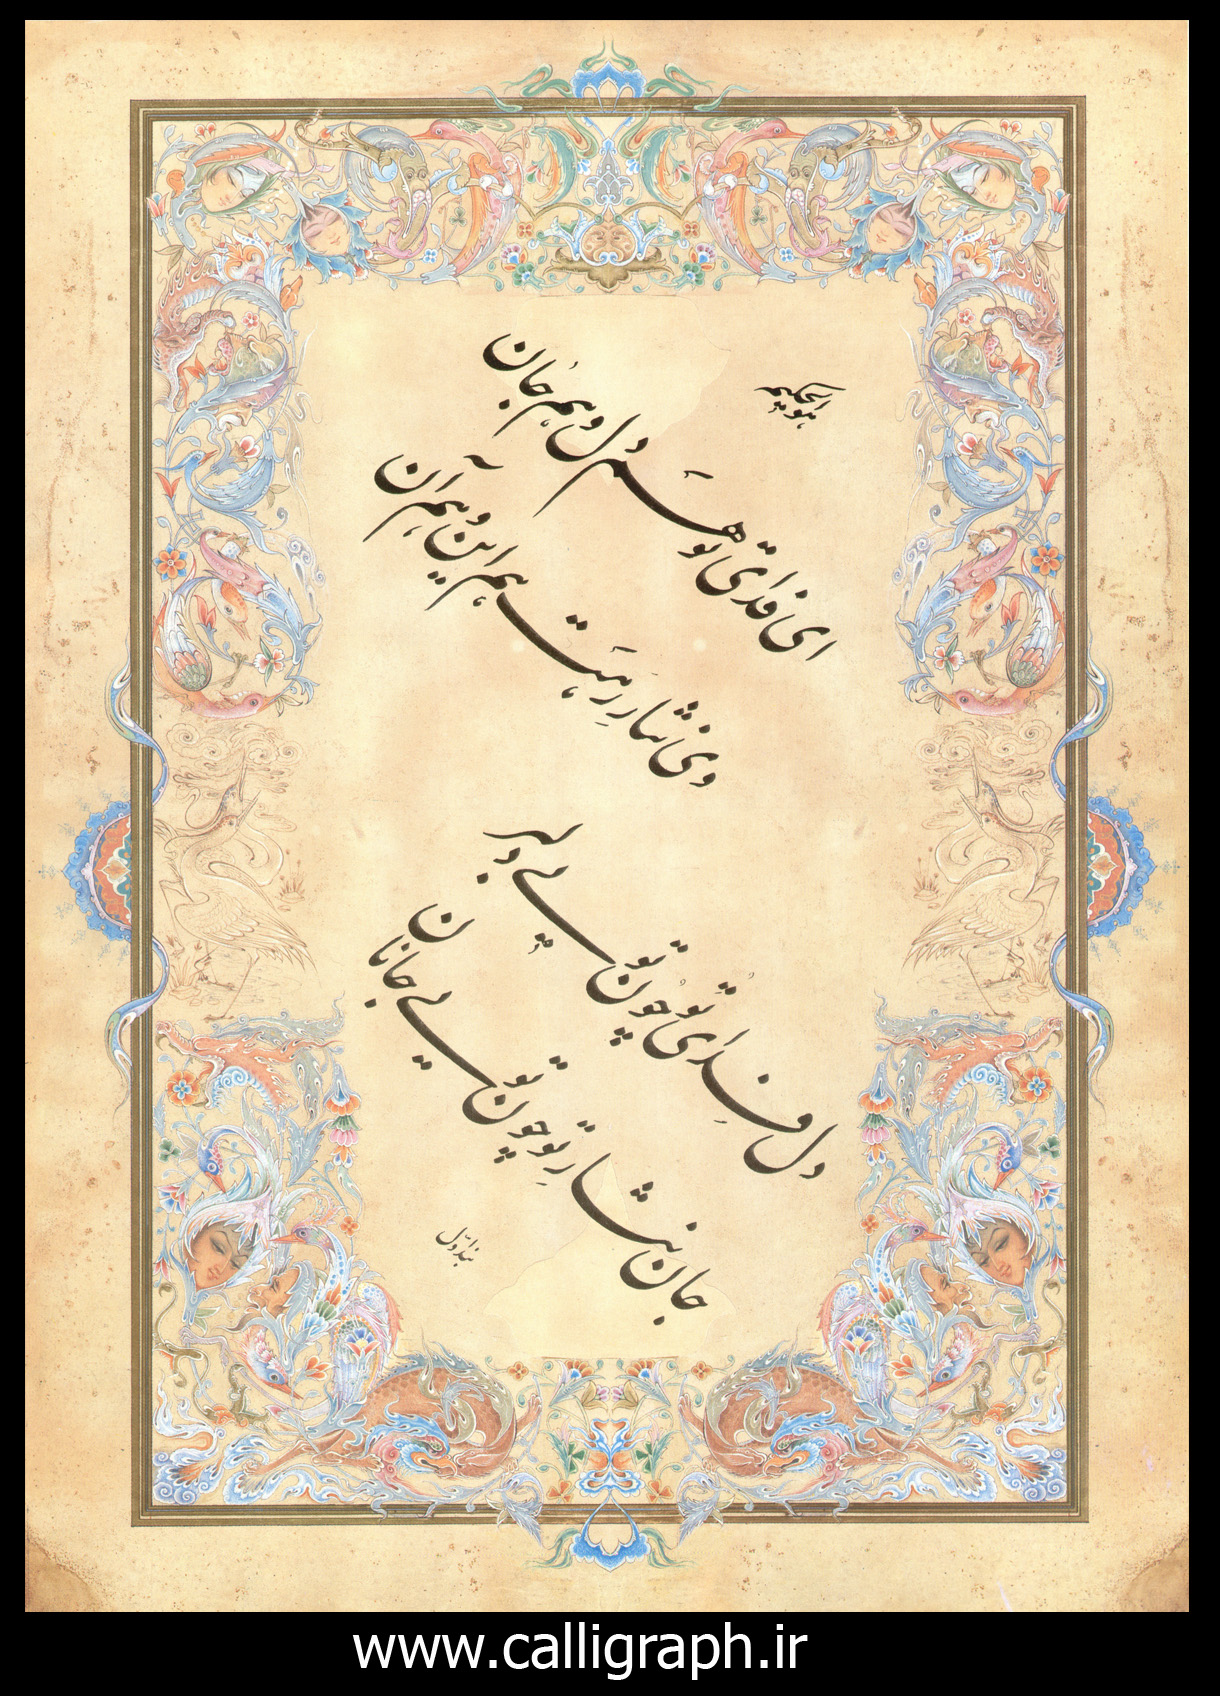 هوالحکیم
ای فدای تو هم دل و هم جان
وی نثار رهت هم این و هم آن
دل فدای تو چون تویی دلبر
جان نثار تو چون تویی جانان
بند اول
www.calligraph.ir